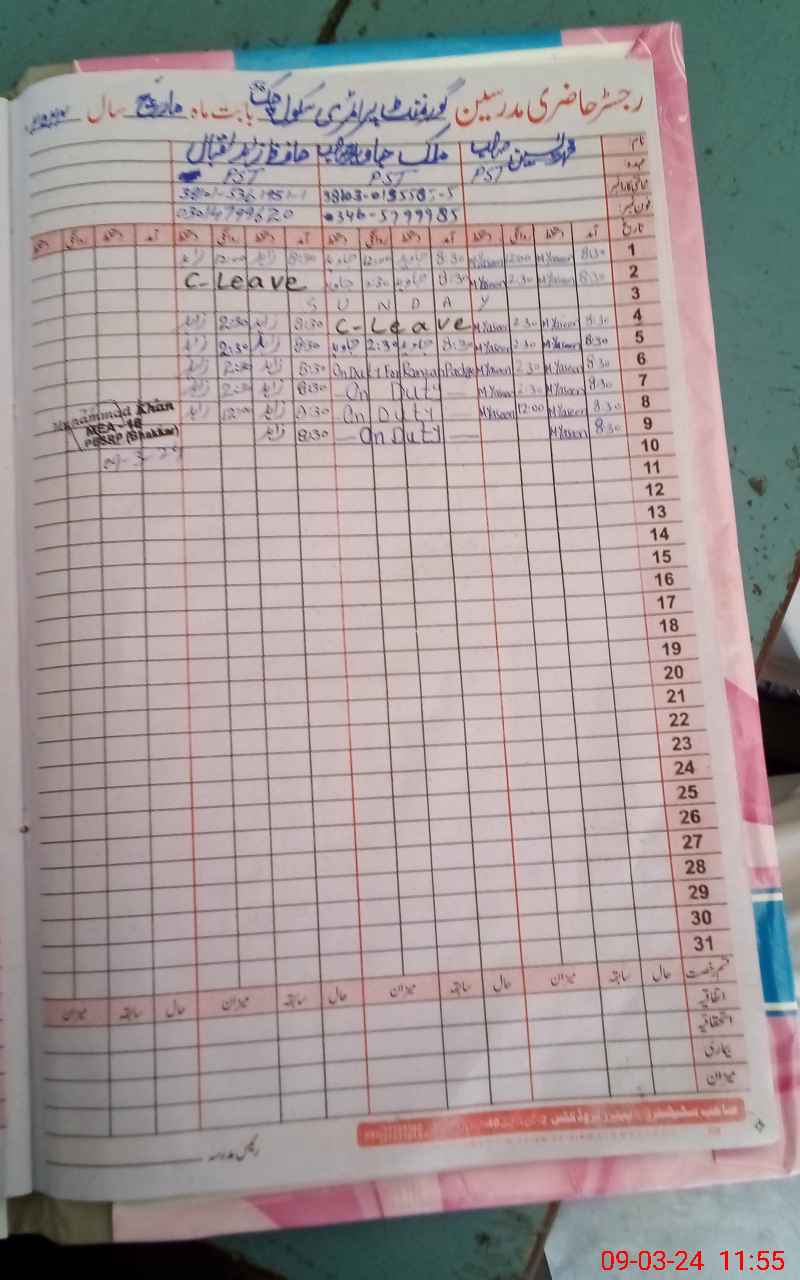 رجسٹر حاضری مدرسین گورنمنٹ پرائمری سکول چک بابت ماہ مارچ سال
نام ملک جاوید حافظ زاہد اقبال
عہدہ PST PST PST
38103-
فون نمبر 0346-5799985
تاریخ آمد دستخط روانگی دستخط آمد دستخط روانگی دستخط آمد دستخط روانگی دستخط آمد دستخط روانگی دستخط
1 8:30 M Yaseen 12:00 M Yaseen 8:30 جاوید 12:00 جاوید 8:30 زاہد 12:00 زاہد
2 8:30 M Yaseen 2:30 M Yaseen 8:30 جاوید 2:30 جاوید C-Leave
3 SUNDAY
4 8:30 M Yaseen 2:30 M Yaseen C-Leave 8:30 زاہد 2:30 زاہد
5 8:30 M Yaseen 2:30 M Yaseen 8:30 جاوید 2:30 جاوید 8:30 زاہد 2:30 زاہد
6 8:30 M Yaseen 2:30 M Yaseen On Duty For 8:30 زاہد 2:30 زاہد
7 8:30 M Yaseen 2:30 M Yaseen On Duty 8:30 زاہد 2:30 زاہد
8 8:30 M Yaseen 12:00 M Yaseen On Duty 8:30 زاہد 12:00 زاہد
9 8:30 M Yaseen On Duty 8:30 زاہد
Muhammad Khan
MEA-16
(Bhakkar)
10
11
12
13
14
15
16
17
18
19
20
21
22
23
24
25
26
27
28
29
30
31
قسم رخصت حال سابقہ میزان حال سابقہ میزان حال سابقہ میزان حال سابقہ میزان
اتفاقیہ
استحقاقیہ
بیماری
میزان
رئیس مدرسہ
09-03-24 11:55